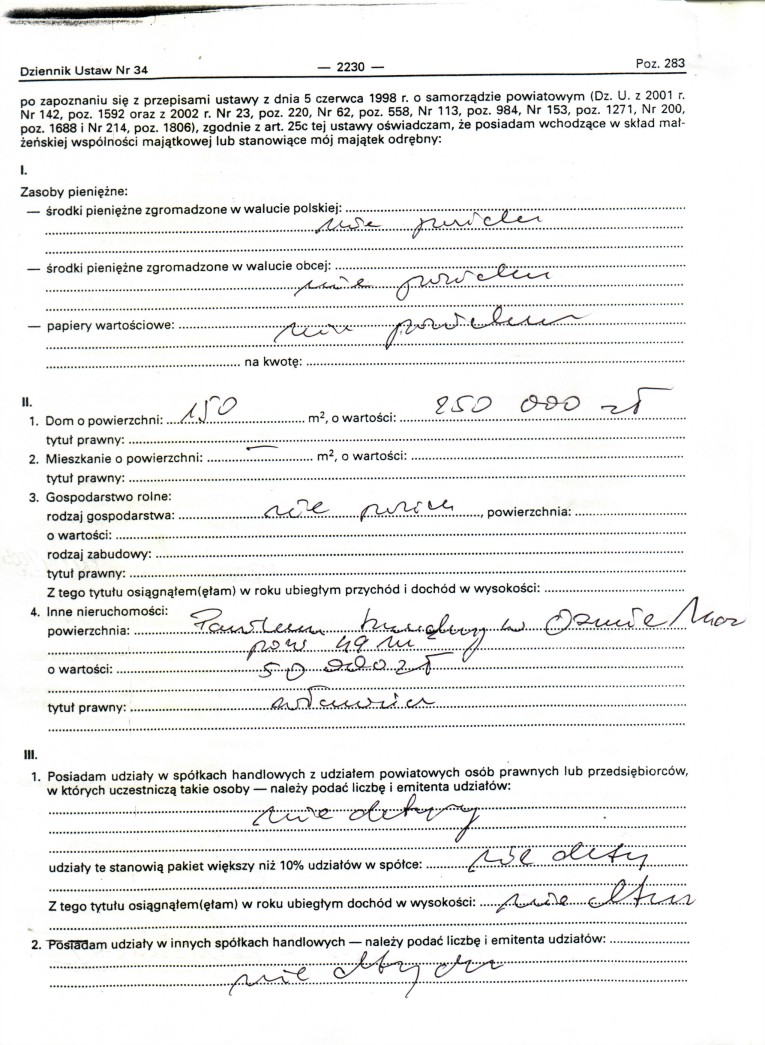 Dziennik Ustaw Nr 34 — 2230 — Poz. 283
po zapoznaniu się z przepisami ustawy z dnia 5 czerwca 1998 r. o samorządzie powiatowym (Dz. U. z 2001 r.
Nr 142, poz. 1592 oraz z 2002 r. Nr 23, poz. 220, Nr 62, poz. 558, Nr 113, poz. 984, Nr 153, poz. 1271, Nr 200,
poz. 1688 i Nr 214, poz. 1806), zgodnie z art. 25c tej ustawy oświadczam, że posiadam wchodzące w skład mał-
żeńskiej wspólności majątkowej lub stanowiące mój majątek odrębny:
I.
Zasoby pieniężne:
— środki pieniężne zgromadzone w walucie polskiej:
nie
— środki pieniężne zgromadzone w walucie obcej:
nie
— papiery wartościowe:
nie
na kwotę:
II.
1. Dom o powierzchni: 150 m², o wartości: 250 000 zł
tytuł prawny:
2. Mieszkanie o powierzchni: — m², o wartości:
tytuł prawny:
3. Gospodarstwo rolne:
rodzaj gospodarstwa: nie , powierzchnia:
o wartości:
rodzaj zabudowy:
tytuł prawny:
Z tego tytułu osiągnąłem(ęłam) w roku ubiegłym przychód i dochód w wysokości:
4. Inne nieruchomości:
powierzchnia: Pawilon w
pow 49 m
o wartości: 50 000 zł
tytuł prawny:
III.
1. Posiadam udziały w spółkach handlowych z udziałem powiatowych osób prawnych lub przedsiębiorców,
w których uczestniczą takie osoby — należy podać liczbę i emitenta udziałów:
nie dotyczy
udziały te stanowią pakiet większy niż 10% udziałów w spółce: nie
Z tego tytułu osiągnąłem(ęłam) w roku ubiegłym dochód w wysokości: nie
2. Posiadam udziały w innych spółkach handlowych — należy podać liczbę i emitenta udziałów:
nie